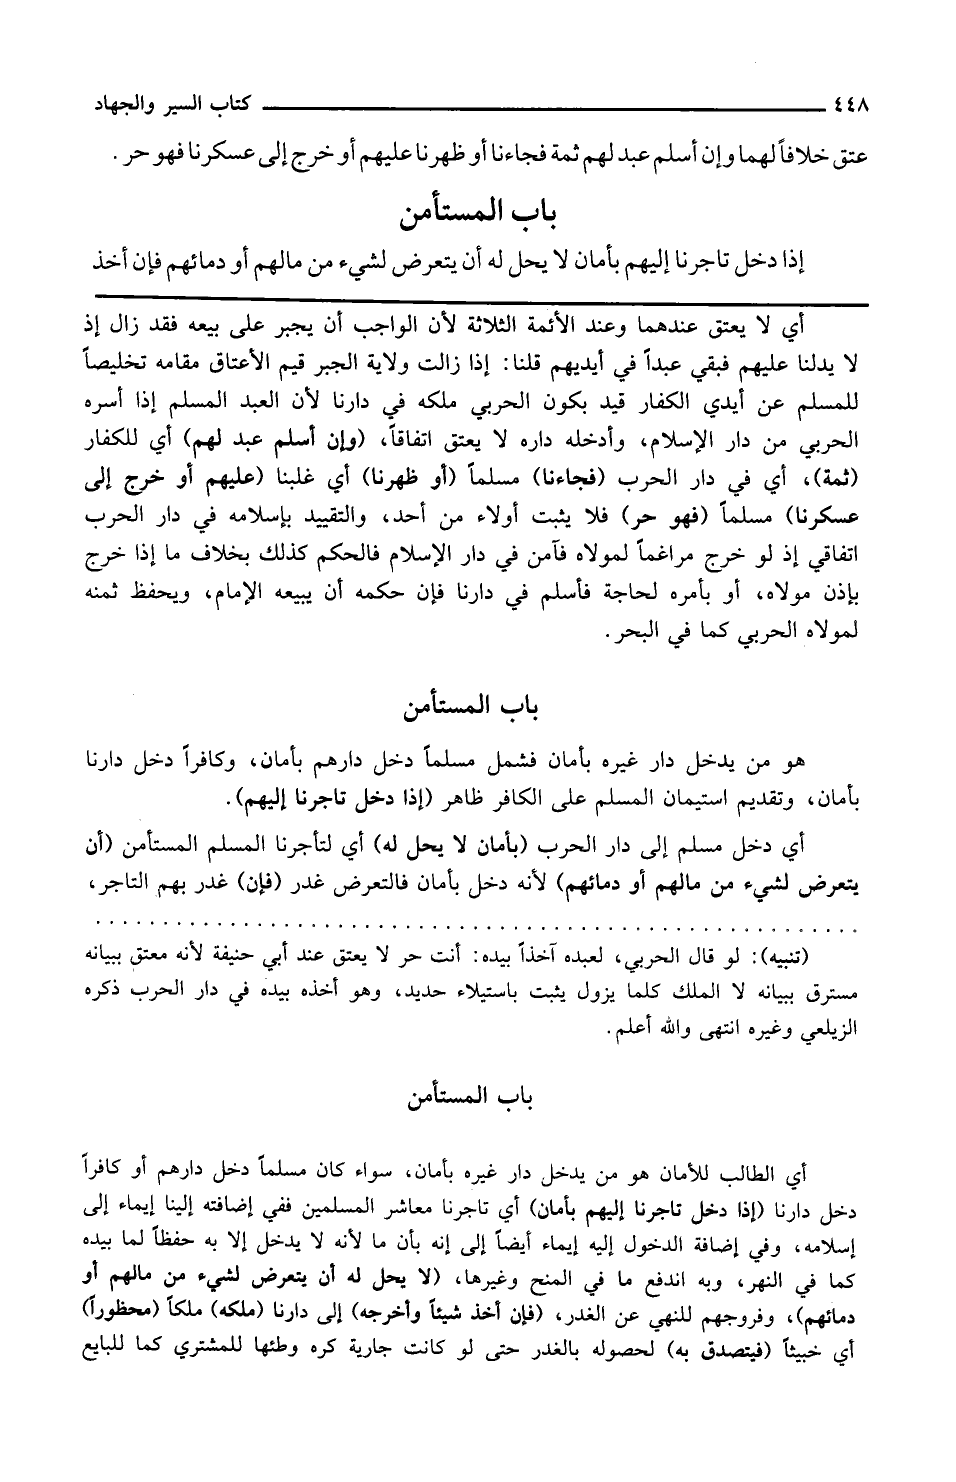 ٤٤٨ ــــــــــــــــــــــــــــــــــــــــ كتاب السير والجهاد
عتق خلافاً لهما وإن أسلم عبد لهم ثمة فجاءنا أو ظهرنا عليهم أو خرج إلى عسكرنا فهو حر .
باب المستأمن
إذا دخل تاجرنا إليهم بأمان لا يحل له أن يتعرض لشيء من مالهم أو دمائهم فإن أخذ
أي لا يعتق عندهما وعند الأئمة الثلاثة لأن الواجب أن يجبر على بيعه فقد زال إذ
لا يدلنا عليهم فبقي عبداً في أيديهم قلنا: إذا زالت ولاية الجبر قيم الأعتاق مقامه تخليصاً
للمسلم عن أيدي الكفار قيد بكون الحربي ملكه في دارنا لأن العبد المسلم إذا أسره
الحربي من دار الإسلام، وأدخله داره لا يعتق اتفاقاً، (وإن أسلم عبد لهم) أي للكفار
(ثمة)، أي في دار الحرب (فجاءنا) مسلماً (أو ظهرنا) أي غلبنا (عليهم أو خرج إلى
عسكرنا) مسلماً (فهو حر) فلا يثبت أولاء من أحد، والتقييد بإسلامه في دار الحرب
اتفاقي إذ لو خرج مراغماً لمولاه فآمن في دار الإسلام فالحكم كذلك بخلاف ما إذا خرج
بإذن مولاه، أو بأمره لحاجة فأسلم في دارنا فإن حكمه أن يبيعه الإمام، ويحفظ ثمنه
لمولاه الحربي كما في البحر.
باب المستأمن
هو من يدخل دار غيره بأمان فشمل مسلماً دخل دارهم بأمان، وكافراً دخل دارنا
بأمان، وتقديم استيمان المسلم على الكافر ظاهر (إذا دخل تاجرنا إليهم).
أي دخل مسلم إلى دار الحرب (بأمان لا يحل له) أي لتأجرنا المسلم المستأمن (أن
يتعرض لشيء من مالهم أو دمائهم) لأنه دخل بأمان فالتعرض غدر (فإن) غدر بهم التاجر،
(تنبيه): لو قال الحربي، لعبده آخذاً بيده: أنت حر لا يعتق عند أبي حنيفة لأنه معتق ببيانه
مسترق ببيانه لا الملك كلما يزول يثبت باستيلاء حديد، وهو أخذه بيده في دار الحرب ذكره
الزيلعي وغيره انتهى والله أعلم.
باب المستأمن
أي الطالب للأمان هو من يدخل دار غيره بأمان، سواء كان مسلماً دخل دارهم أو كافراً
دخل دارنا (إذا دخل تاجرنا إليهم بأمان) أي تاجرنا معاشر المسلمين ففي إضافته إلينا إيماء إلى
إسلامه، وفي إضافة الدخول إليه إيماء أيضاً إلى إنه بأن ما لأنه لا يدخل إلا به حفظاً لما بيده
كما في النهر، وبه اندفع ما في المنح وغيرها، (لا يحل له أن يتعرض لشيء من مالهم أو
دمائهم)، وفروجهم للنهي عن الغدر، (فإن أخذ شيئاً وأخرجه) إلى دارنا (ملكه) ملكاً (محظوراً)
أي خبيثاً (فيتصدق به) لحصوله بالغدر حتى لو كانت جارية كره وطئها للمشتري كما للبايع